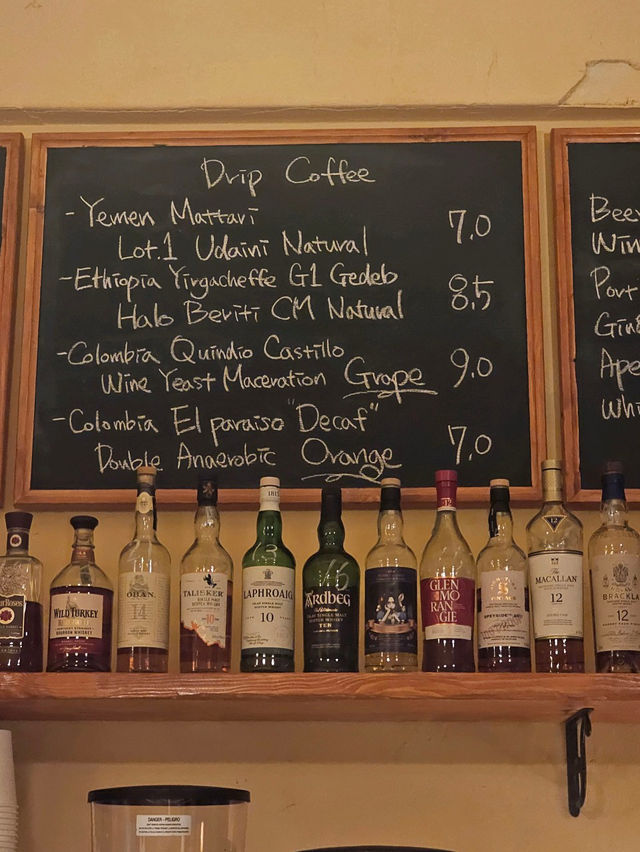 Drip Coffee
-Yemen Mattari
Lot.1 Udaini Natural 7.0
-Ethiopia Yirgacheffe G1 Gedeb
Halo Beriti CM Natural 8.5
-Colombia Quindio Castillo
Wine Yeast Maceration Grape 9.0
-Colombia El paraiso "Decaf"
Double Anaerobic Orange 7.0
Beer
Win
Port
Gin
Ape
Whi
WILD TURKEY
OBAN
14
TALISKER
10
13
LAPHROAIG
10
Ardbeg
TEN
GLEN
MO
RAN
GIE
SPEYSIDE
The
MACALLAN
12
BRACKLA
12
DANGER - PELIGRO